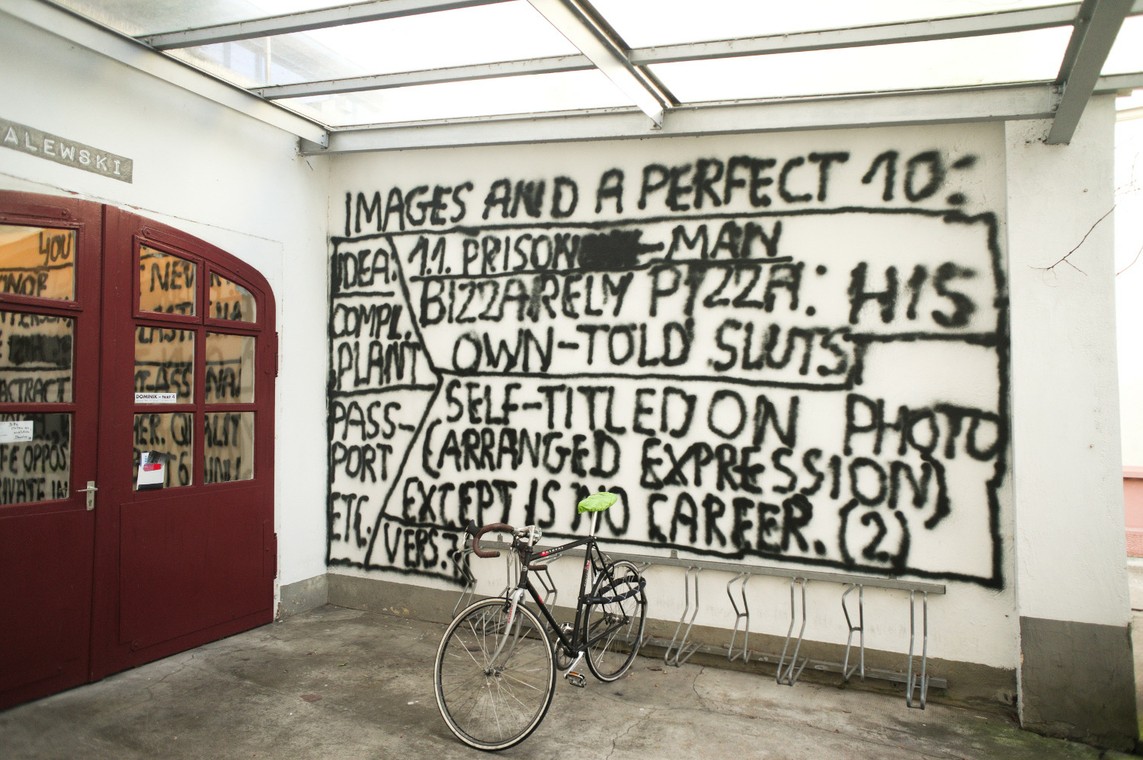 ALEWSKI
IMAGES AND A PERFECT 10:
IDEA:
1.1. PRISON -MAN
BIZZARELY PIZZA: HIS
OWN-TOLD SLUTS
COMPL.
PLANT
SELF-TITLED ON PHOTO
(ARRANGED EXPRESSION)
EXCEPT IS NO CAREER. (2)
PASS-
PORT
ETC.
VERS.
YOU
NEW
DOMINIK - text 8
ACTRACT
ER. QUALITY
FE OPPOS
IVATE IN